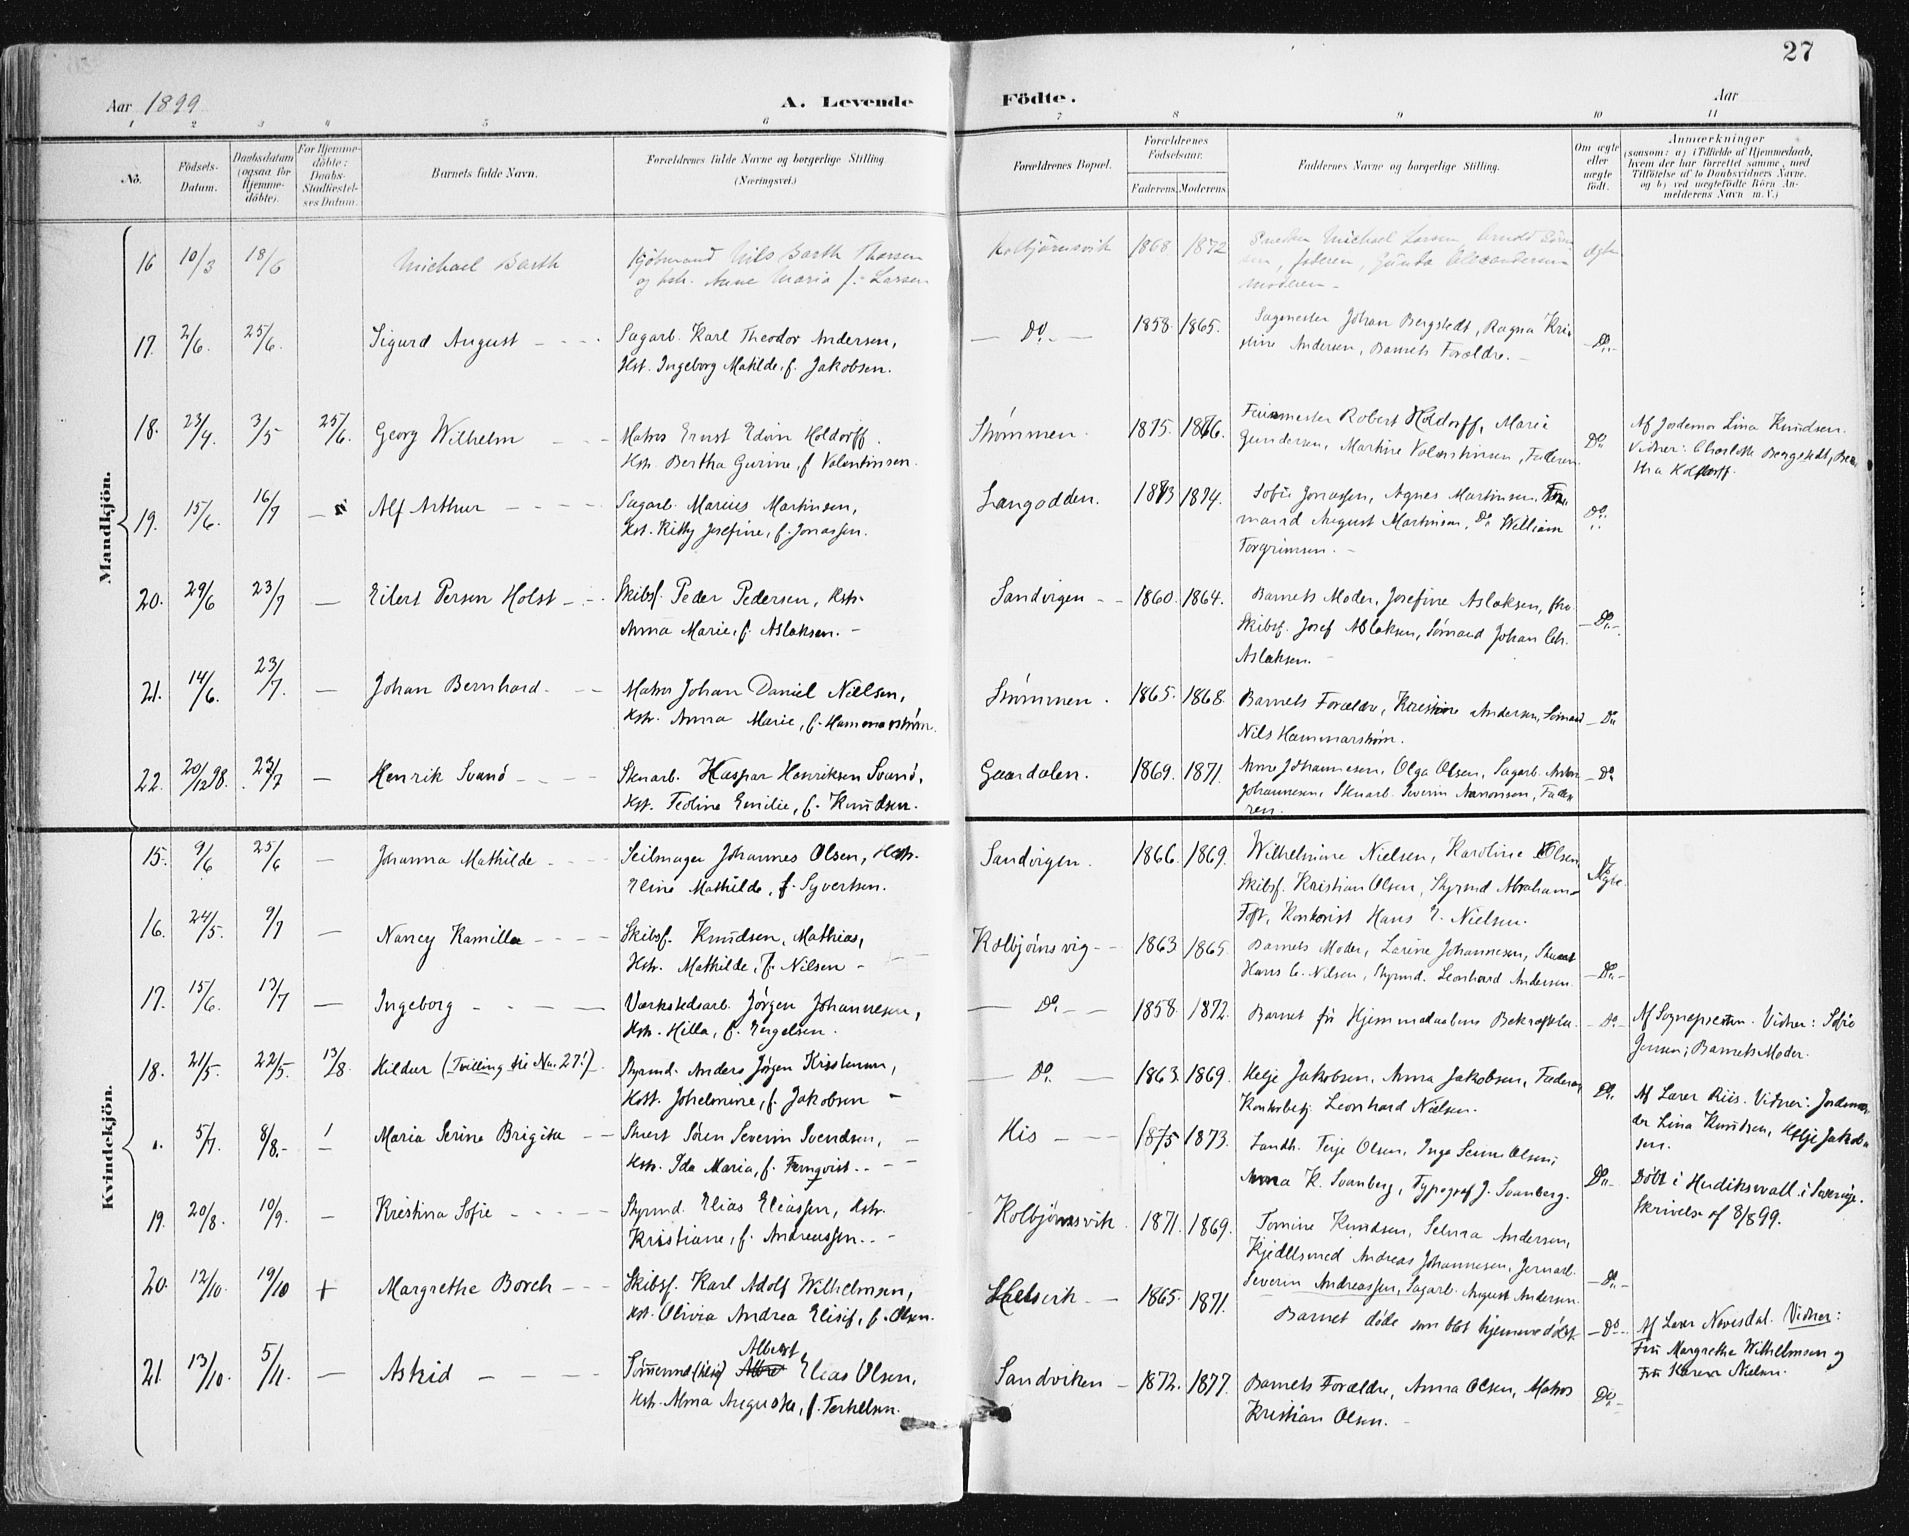 27
Aar 1899
A. Levende
Födte.
Aar
1 2 3 4 5 6 7 8 9 10 11
No.
Födsels-
Datum.
Daabsdatum
(ogsaa for
Hjemme-
döbte).
For Hjemme-
döbte:
Daabs-
Stadfæstel-
ses Datum.
Barnets fulde Navn.
Forældrenes fulde Navne og borgerlige Stilling
(Næringsvei.)
Forældrenes Bopæl.
Forældrenes
Födselsaar.
Faderens. Moderens.
Faddernes Navne og borgerlige Stilling.
Om ægte
eller
uægte
født.
Anmærkninger
(saasom: a) i Tilfælde af Hjemmedaab,
hvem der har forrettet samme, med
Tilföielse af to Daabsvidners Navne.
og b) ved uægtefödte Börn An-
melderens Navn m. V.)
Mandkjön.
16 10/3 18/6 Michael Barth
Kjøbmand Nils Barth Thorsen
og hstr. Anne Maria f. Larsen
Kolbjörnsvik 1868 1872
Michael Larsen,
faderen, Gunda
moderen -
ægte
17. 2/6. 25/6. Sigurd August - - -
Sagarb. Karl Theodor Andersen,
Hst. Ingeborg Matilde, f. Jakobsen.
- Do. - 1858. 1865.
Sagmester Johan Bergstedt, Ragna Kri-
stine Andersen, Barnets Forældre. -
- Do. -
18. 23/4. 3/5 25/6. Georg Wilhelm - -
Matros Ernst Edvin Holdorff.
Hstr. Bertha Gurine, f. Valentinsen.
Strømmen. 1875. 1876.
Robert Holdorff, Marie
Gundersen, Martine Valentinsen, Faderen
Do.
Af Jordemor Lina Knudsen.
Vidner: Charlotte Bergstedt, Ber-
tha Holdorff.
19. 15/6. 16/7 - Alf Arthur - - - -
Sagarb. Marius Martinsen,
Hst. Kitty Josefine, f. Jonassen.
Langodden. 1873 1874.
Sofie Jonassen, Agnes Martinsen,
mand August Martinsen, Do. William
Torgrimsen. -
Do.
20. 29/6 23/7 - Eilert Persen Holst - -
Skibsf. Peder Pedersen, Hstr.
Anna Marie, f. Aslaksen. -
Sandvigen - - 1860. 1864.
Barnets Moder, Josefine Aslaksen, fru
Skibsf. Josef Aslaksen, Sømand Johan Chr.
Aslaksen. -
- Do. -
21. 14/6. 23/7. - Johan Bernhard. - -
Matros Johan Daniel Nielsen,
Hstr. Anna Marie, f. Hammarstrøm.
Strømmen. 1865. 1868.
Barnets Forældre, Kristine Andersen, Sømand
Nils Hammarstrøm.
- Do.
22. 20/12 98. 23/7 - Henrik Svanö - - - -
Skuarb. Kaspar Henriksen Svanö,
Hst. Teoline Emilie, f. Knudsen.
Gaardalen. 1869. 1871.
Johannesen, Olga Olsen, Sagarb. Anton
Johannesen, Skuarb. Severin Aanonsen, Fade-
ren.
- Do.
Kvindekjön.
15. 9/6 25/6 - Johanna Mathilde - - - -
Seilmager Johannes Olsen, Hstr.
Eline Mathilde, f. Syvertsen.
Sandvigen. 1866. 1869.
Wilhelmine Nielsen, Karoline Olsen,
Skibsf. Kristian Olsen, Styrmd Abraham
Toft, Kontorist Hans E. Nielsen.
Ægte.
16. 24/5. 9/7 - Nancy Kamilla - - - -
Skibsf. Knudsen, Mathias,
Hstr. Mathilde, f. Nilsen -
Kolbjönsvig - - 1863 1865.
Barnets Moder, Larine Johannesen,
Hans C. Nilsen, Styrmd. Leonhard Andersen.
- Do. -
17. 15/6. 13/7 - Ingeborg - - - -
Værkstedsarb. Jörgen Johannesen,
Hst. Hilla, f. Engelsen.
- Do. - - 1858. 1872.
Barnet før Hjemmedaabens Bekræftelse.
- Do. -
Af Sognepresten. Vidner: Sofie
Jensen; Barnets Moder.
18. 21/5. 22/5. 13/8 Hildur (Tvilling til No. 27!)
Styrmd. Anders Jörgen Kristensen,
Hst. Johelmine, f. Jakobsen -
- Do. - 1863. 1869.
Helje Jakobsen, Anna Jakobsen, Faderen
Kontorbetj. Leonhard Nielsen.
Do.
Af Lærer Riis. Vidner: Jordemo-
der Lina Knudsen, Helje Jakob-
sen.
5/7. 8/8. - Maria Serine Brigitta - -
Stuert Sören Severin Svendsen, -
Hstr. Ida Maria, f. Fernqvist. - -
His - - - 1875 1873.
Landh. Terje Olsen, Inga Serine Olsen,
Anna K. Svanberg, Typograf J. Svanberg.
Do. -
Döbt i Hudiksvall i Sverige.
Skrivelse af 8/8 99.
19. 20/8. 10/9. - Kristina Sofie - - - -
Styrmd. Elias Eliassen, Hstr.
Kristiane, f. Andreassen. - -
Kolbjørnsvik. 1871. 1869.
Tomine Knudsen, Selma Andersen,
Kjedelsmed Andreas Johannesen, Jernarb.
Severin Andreassen, Sagarb. August Andersen.
- Do. -
20. 12/10. 19/10 + Margrethe Borch - - -
Skibsf. Karl Adolf Wilhelmsen,
Hst. Olivia Andrea Elisif, f. Olsen.
1865. 1871.
Barnet døde som blot hjemmedøbt
- Do -
Af Lærer Nævesdal. Vidner:
Fru Margrethe Wilhelmsen og
Fru Karen Nielsen.
21. 13/10. 5/11. - Astrid - - - -
Albert Elias Olsen,
Hstr. Alma Auguste, f. Terkelsen.
Sandviken - 1872. 1877.
Barnets Forældre, Anna Olsen, Matros
Kristian Olsen. -
Do. -